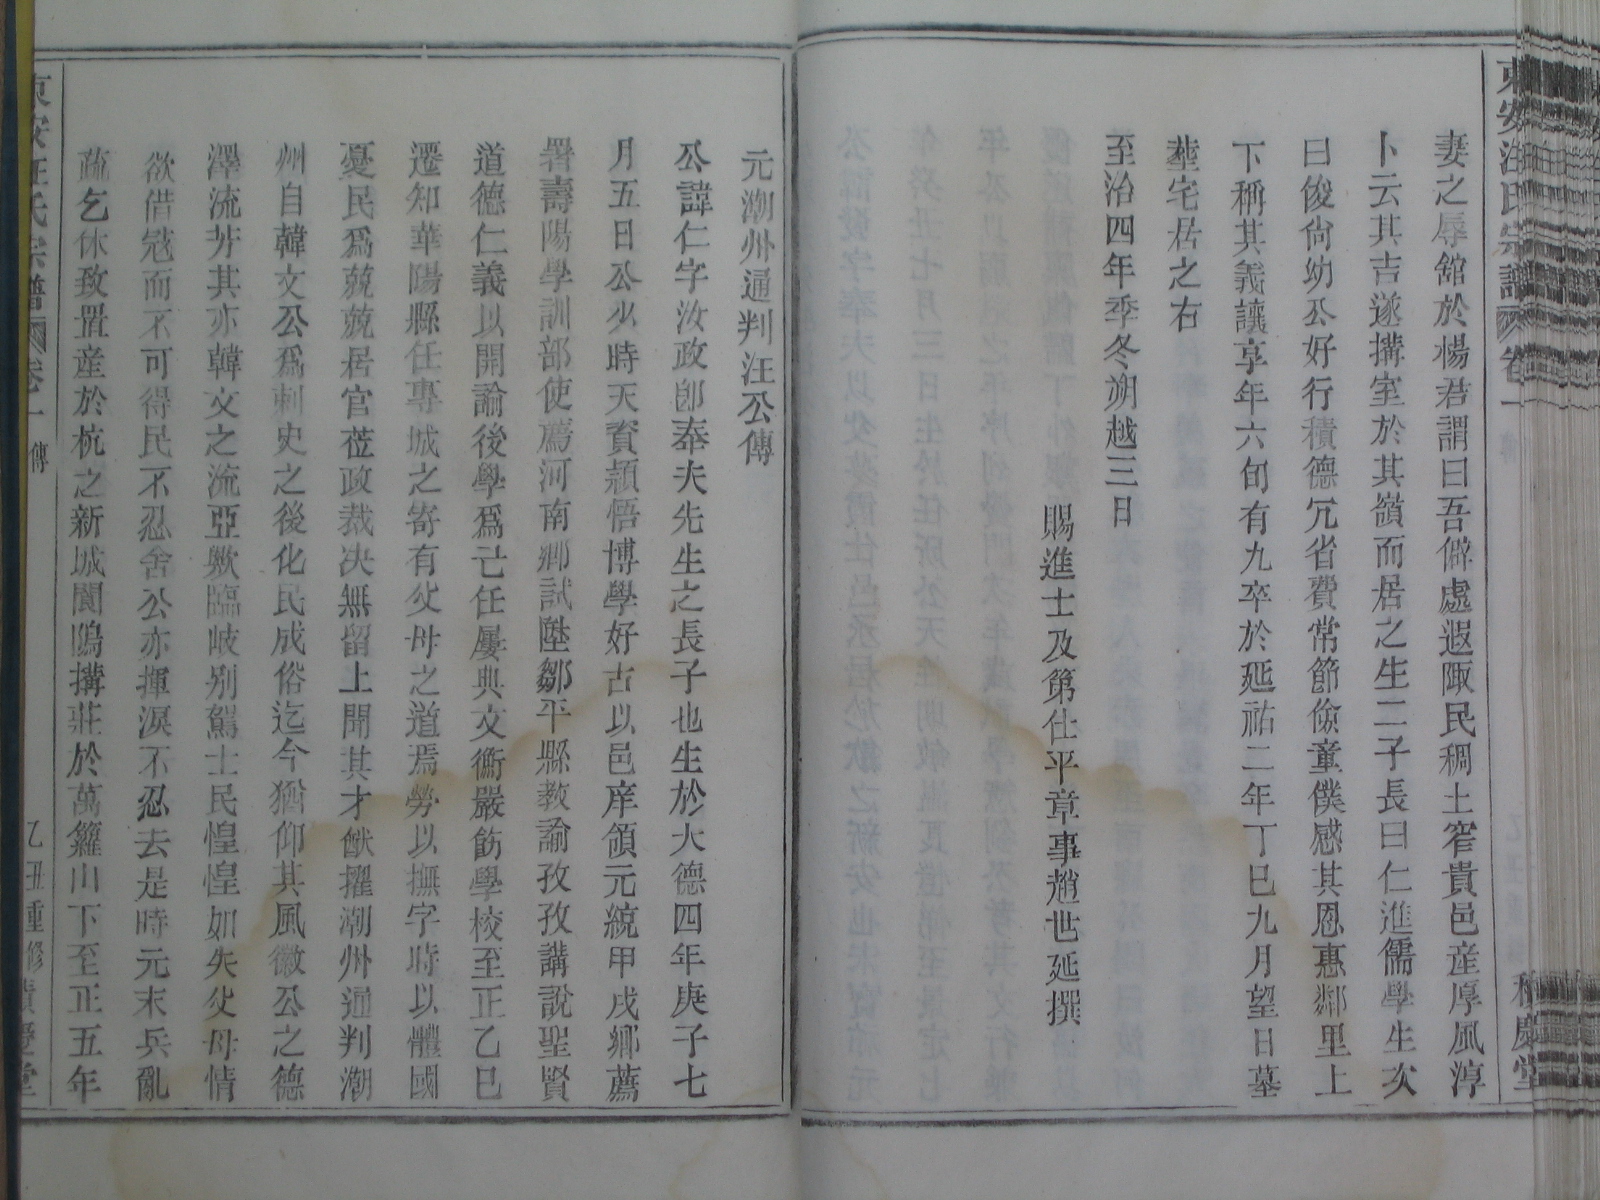 妻之辱舘於楊君謂曰吾僻處遐陬民稠土窄貴邑産厚風淳
卜云其吉遂搆室於其嶺而居之生二子長曰仁進儒學生次
曰俊尙幼公好行積德冗省費常節儉童僕感其恩惠鄰里上
下稱其義讓享年六旬有九卒於延祐二年丁巳九月望日墓
塟宅居之右
至治四年季冬朔越三日
賜進士及第仕平章事趙世延撰
元潮州通判汪公傳
公諱仁字汝政卽奉夫先生之長子也生於大德四年庚子七
月五日公少時天資穎悟博學好古以邑庠領元統甲戌鄉薦
署壽陽學訓部使薦河南鄉試陞鄒平縣教諭孜孜講說聖賢
道德仁義以開諭後學爲己任屢典文衡嚴飭學校至正乙巳
遷知華陽縣任專城之寄有父母之道焉勞以撫字時以體國
憂民爲兢兢居官莅政裁决無留上聞其才猷擢潮州通判潮
州自韓文公爲刺史之後化民成俗迄今猶仰其風徽公之德
澤流芳其亦韓文之流亞歟臨岐别駕士民惶惶如失父母情
欲借寇而不可得民不忍舍公亦揮淚不忍去是時元末兵亂
疏乞休致置産於杭之新城闤隝搆莊於萬籮山下至正五年
東安汪氏宗譜 卷一 傳
乙丑重修 積慶堂
東安汪氏宗譜 卷一
積慶堂